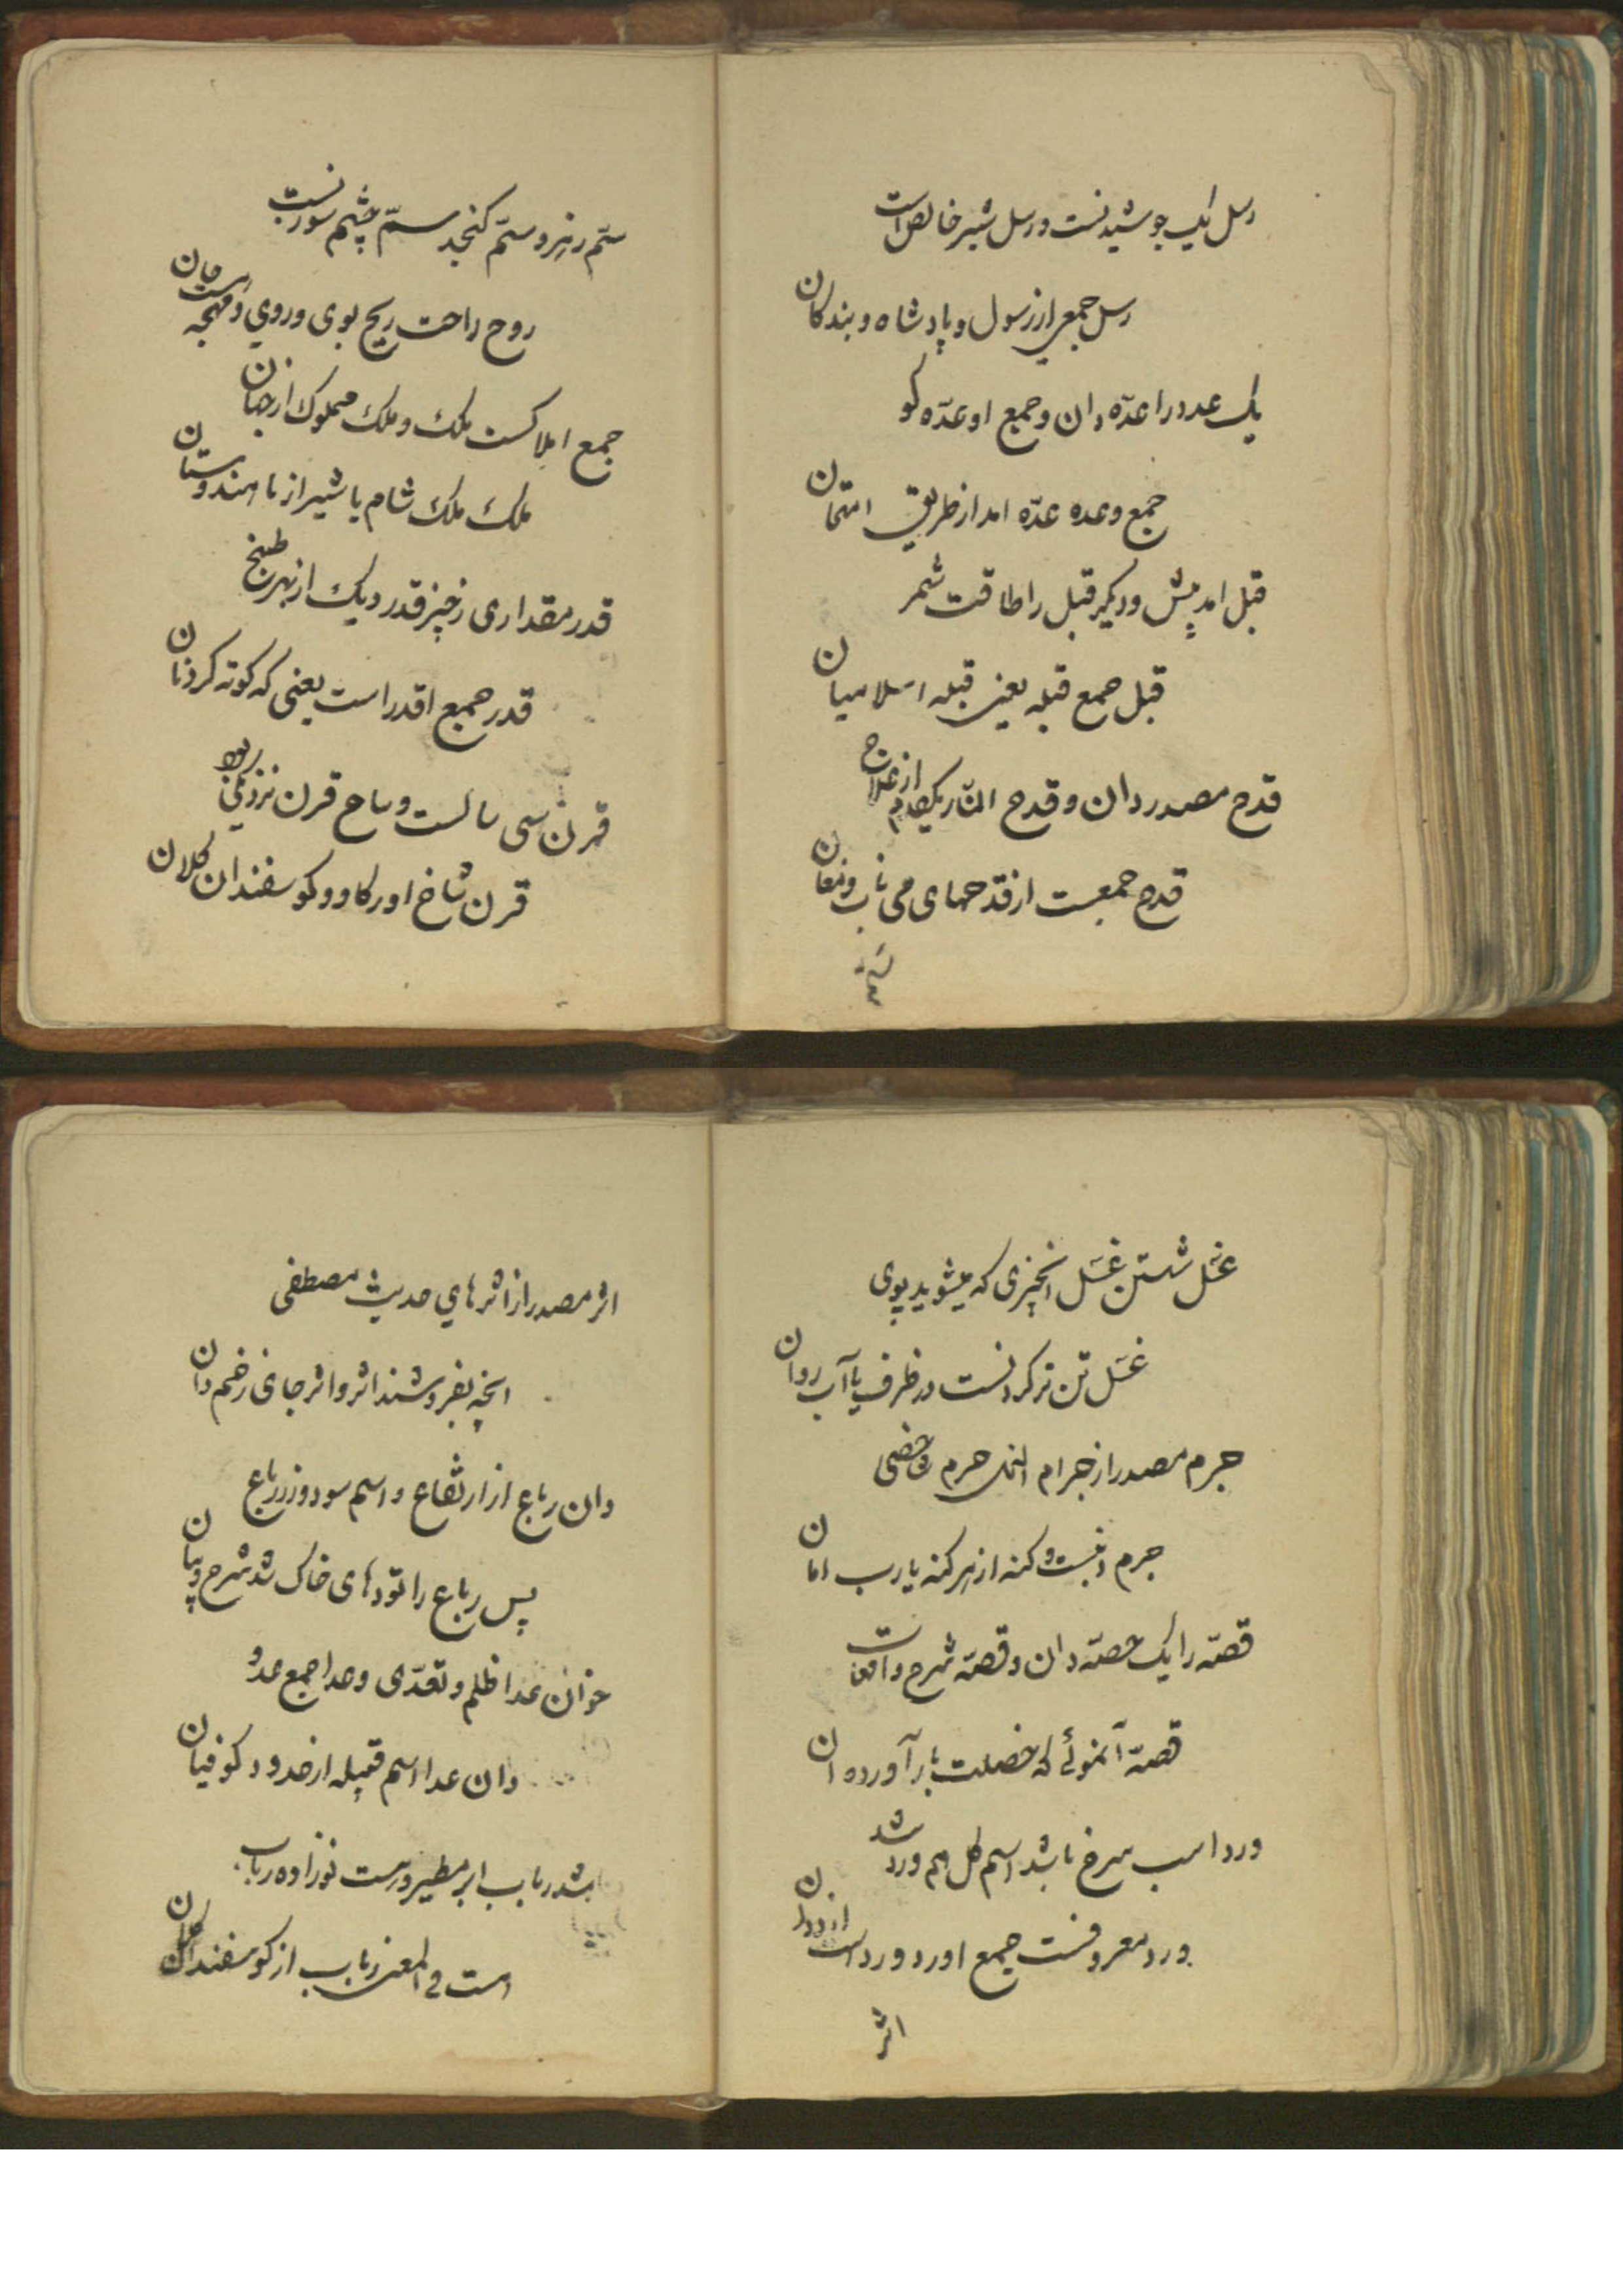 رسل یک جوشیدنست و رسل شیر خالص است
رسل جمعی از رسول و پادشاه و بندکان
یک عدد را عدّه دان و جمع او عدّه کو
جمع وعده عدّه امد از طریق امتحان
قبل امد پیش و دیکر قبل را طاقت شمر
قبل جمع قبله یعنی قبله اسلامیان
قدح مصدر دان و قدح النّار یکدم از علاج
قدح جمعست از قدحهای می ناب و مغان
ستم
سَمّ زهر و سمّ کنجد سمّ چشم سوزنست
روح راحت ریح بوی و روی و مهجه است جان
جمع املاکست ملک و ملک مملوک از جهان
ملک ملک شام یا شیراز یا هندوستان
قدر مقداری ز چیز قدر دیک از بهر طبخ
قدر جمع اقدر است یعنی که کوته کردنان
قرن سی سالست و ساح قرن نزد بود
قرن شاخ اور کاو و کوسفندان کلان
غسل شستن غسل انچیزی که میشوید بوی
غسل تن تر کردنست در ظرف یا آب روان
جرم مصدر از جرام النخل جرم
جرم ذنبست و کنه از هر کنه یا رب امان
قصّه را یک حصّه دان و قصّه شرح واقعات
قصّه آنموئے که خصلت بار آورده ان
ورد اسب سرخ باشد اسم کل هم ورد شد
ورد معروفست جمع اورد ورد است از
اثر
اثر مصدر از اثرهاي حدیث مصطفی
انچه بفروشند اثر و اثر جای زخم دان
دان رباع از ارتفاع و اسم سود و زر رباع
پس رباع را تودهای خاک شد شرح و بیان
خوان عدا ظلم و تعدّی و عدا جمع عدو
دان عدا اسم قبیله از حدود کوفیان
شد رباب ابر مطیر و رست نوزاده رباب
است فی المعنی رباب از کوسفندان